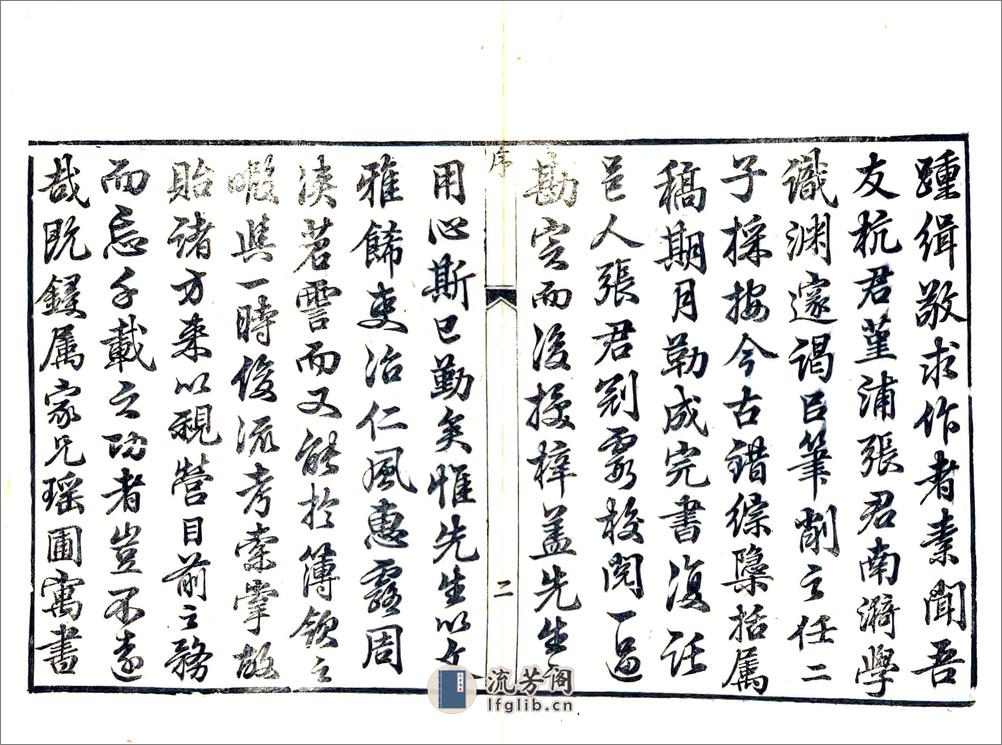 踵緝敬求作者素聞吾
友杭君堇浦張君南漪學
識淵邃謁以筆削之任二
子採按今古錯綜櫽括屬
稿期月勒成完書復託
邑人張君剡雲校閱一過
勘定而後授梓蓋先生之
序
二
用心斯已勤矣惟先生以文
雅餙吏治仁風惠露周
浹苕霅而又能於簿領之
暇與一時俊流考索掌故
貽諸方來以視營目前之務
而忘千載之功者豈不遠
哉既錄屬家兄瑶圃寓書
流芳阁
lfglib.cn